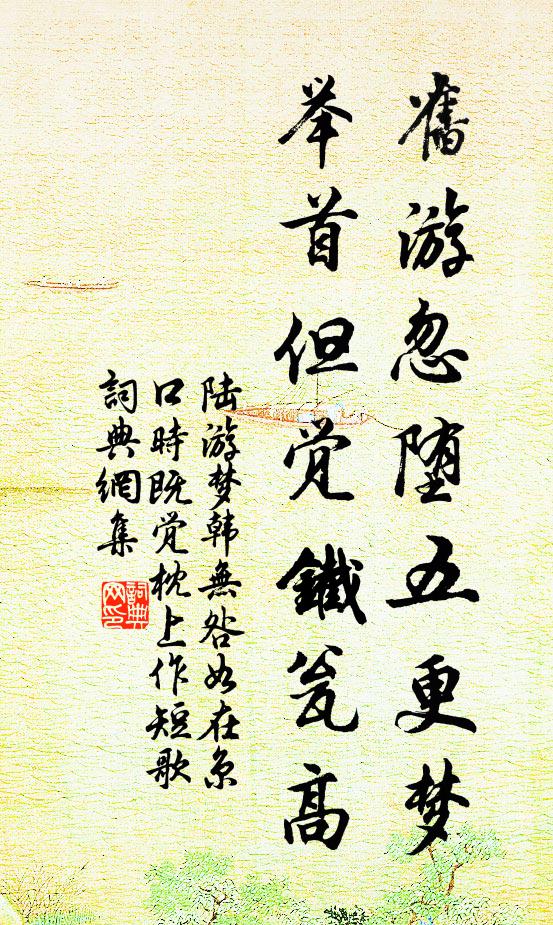 舊游忽堕五更梦
举首但觉鐵瓮高
陆游梦韩無咎如在京
口時既觉枕上作短歌
詞典網集
詞典网印